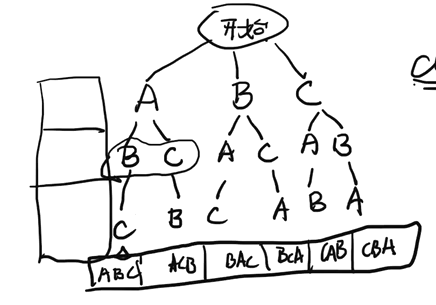 开始
A B C
B C A C A B
C B C A B A
ABC ACB BAC BCA CAB CBA